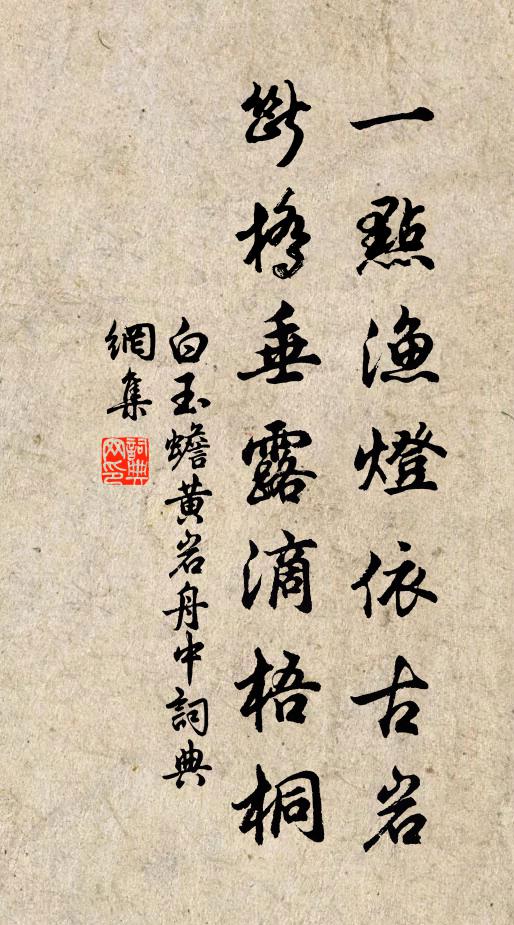 一點漁燈依古岩
斷橋垂露滴梧桐
白玉蟾黃岩舟中詞典
網集
詞典
网印